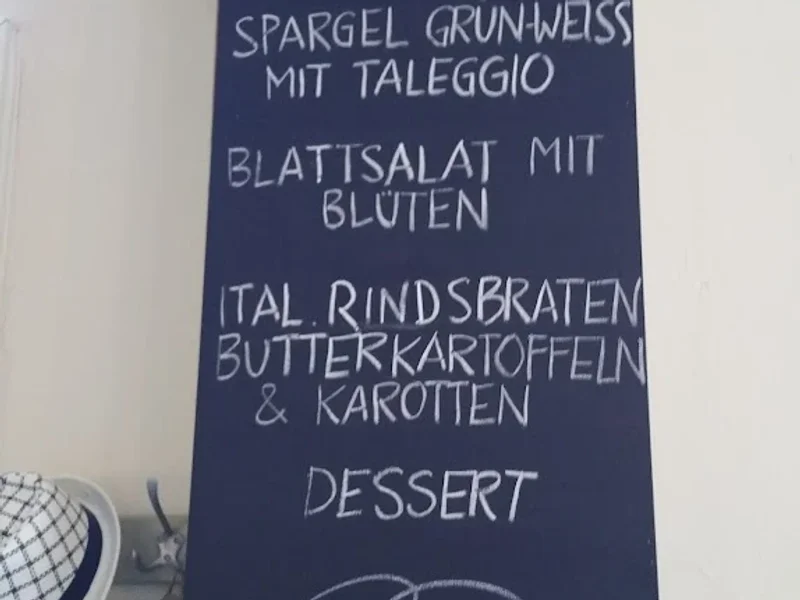 SPARGEL GRÜN-WEISS
MIT TALEGGIO
BLATTSALAT MIT
BLÜTEN
ITAL. RINDSBRATEN
BUTTERKARTOFFELN
& KAROTTEN
DESSERT